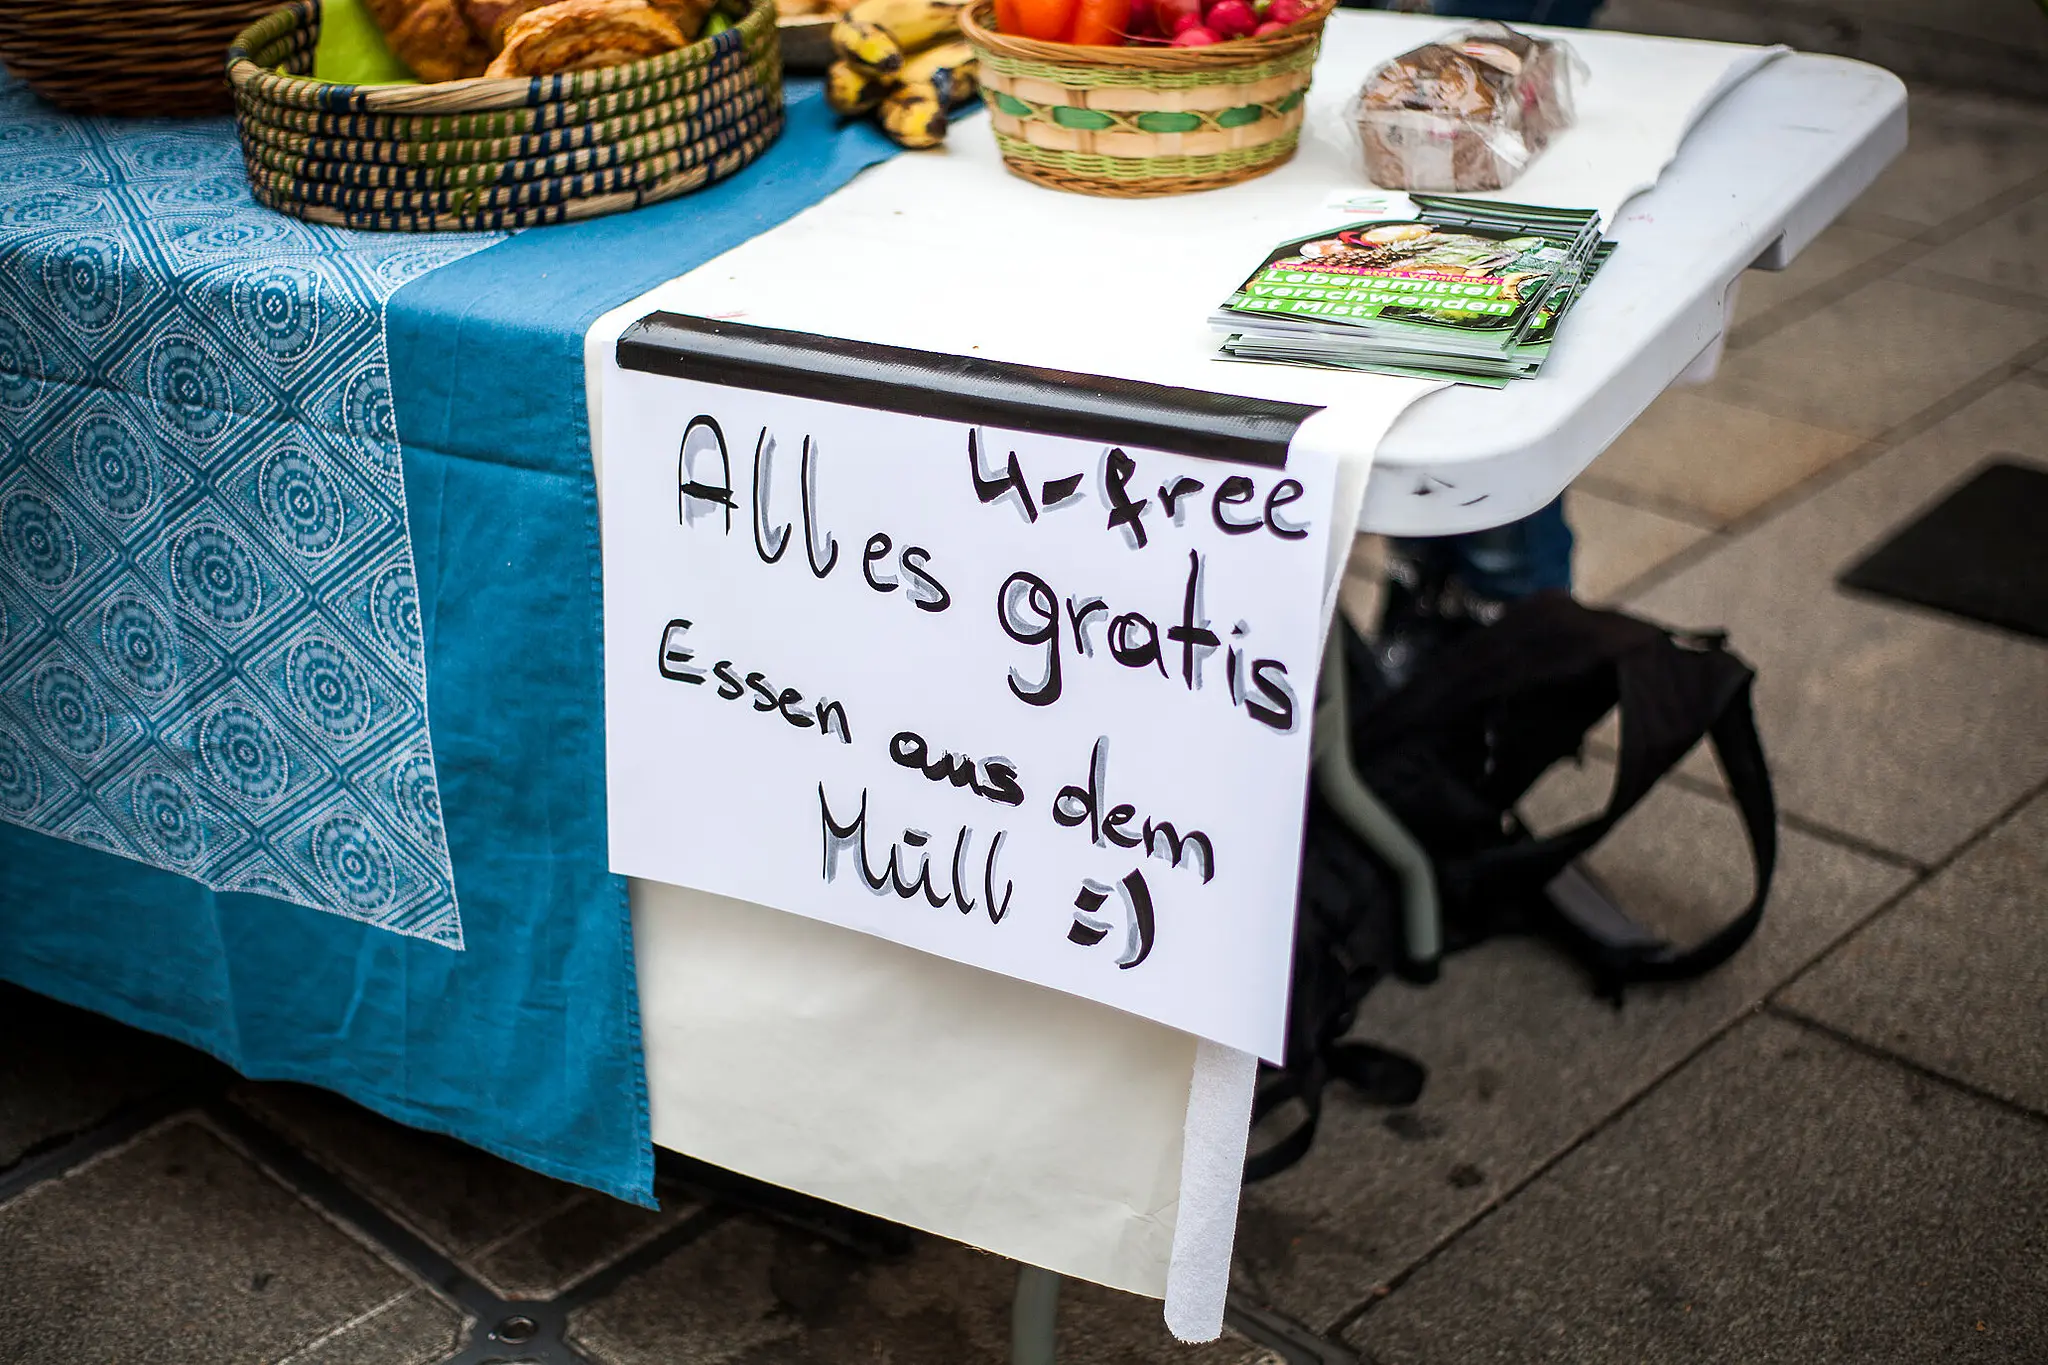 Verwerten statt Vernichten
Lebensmittel
verschwenden
ist Mist.
4-free
Alles gratis
Essen aus dem
Müll :)